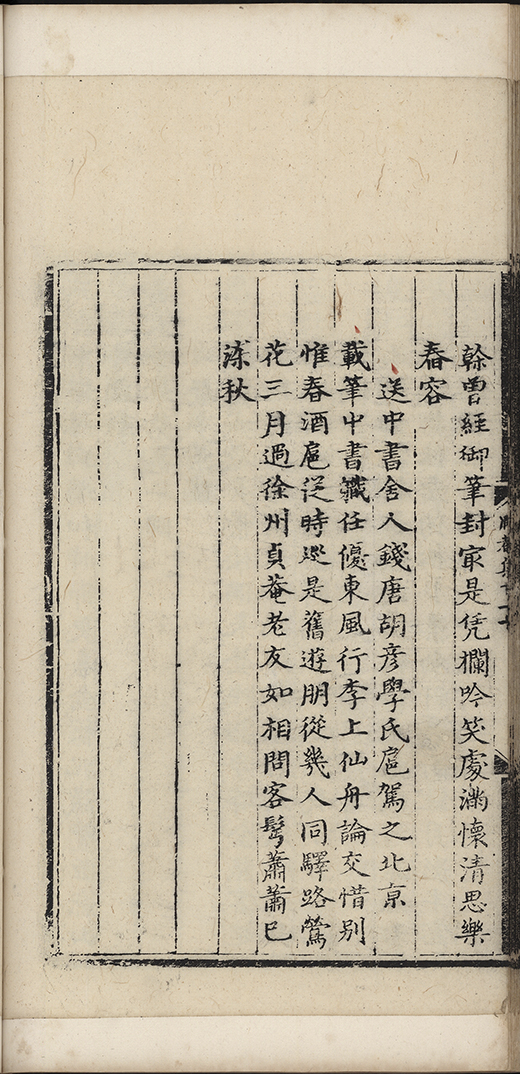 榦曾經御筆封㝡是凭欄吟笑處滿懷清思樂
春容
送中書舍人錢唐胡彥學氏扈駕之北京
載筆中書職任優東風行李上仙舟論交惜別
惟春酒扈從時廵是舊遊朋從幾人同驛路鶯
花三月過徐州貞菴老友如相問客髩蕭蕭巳
涑秋